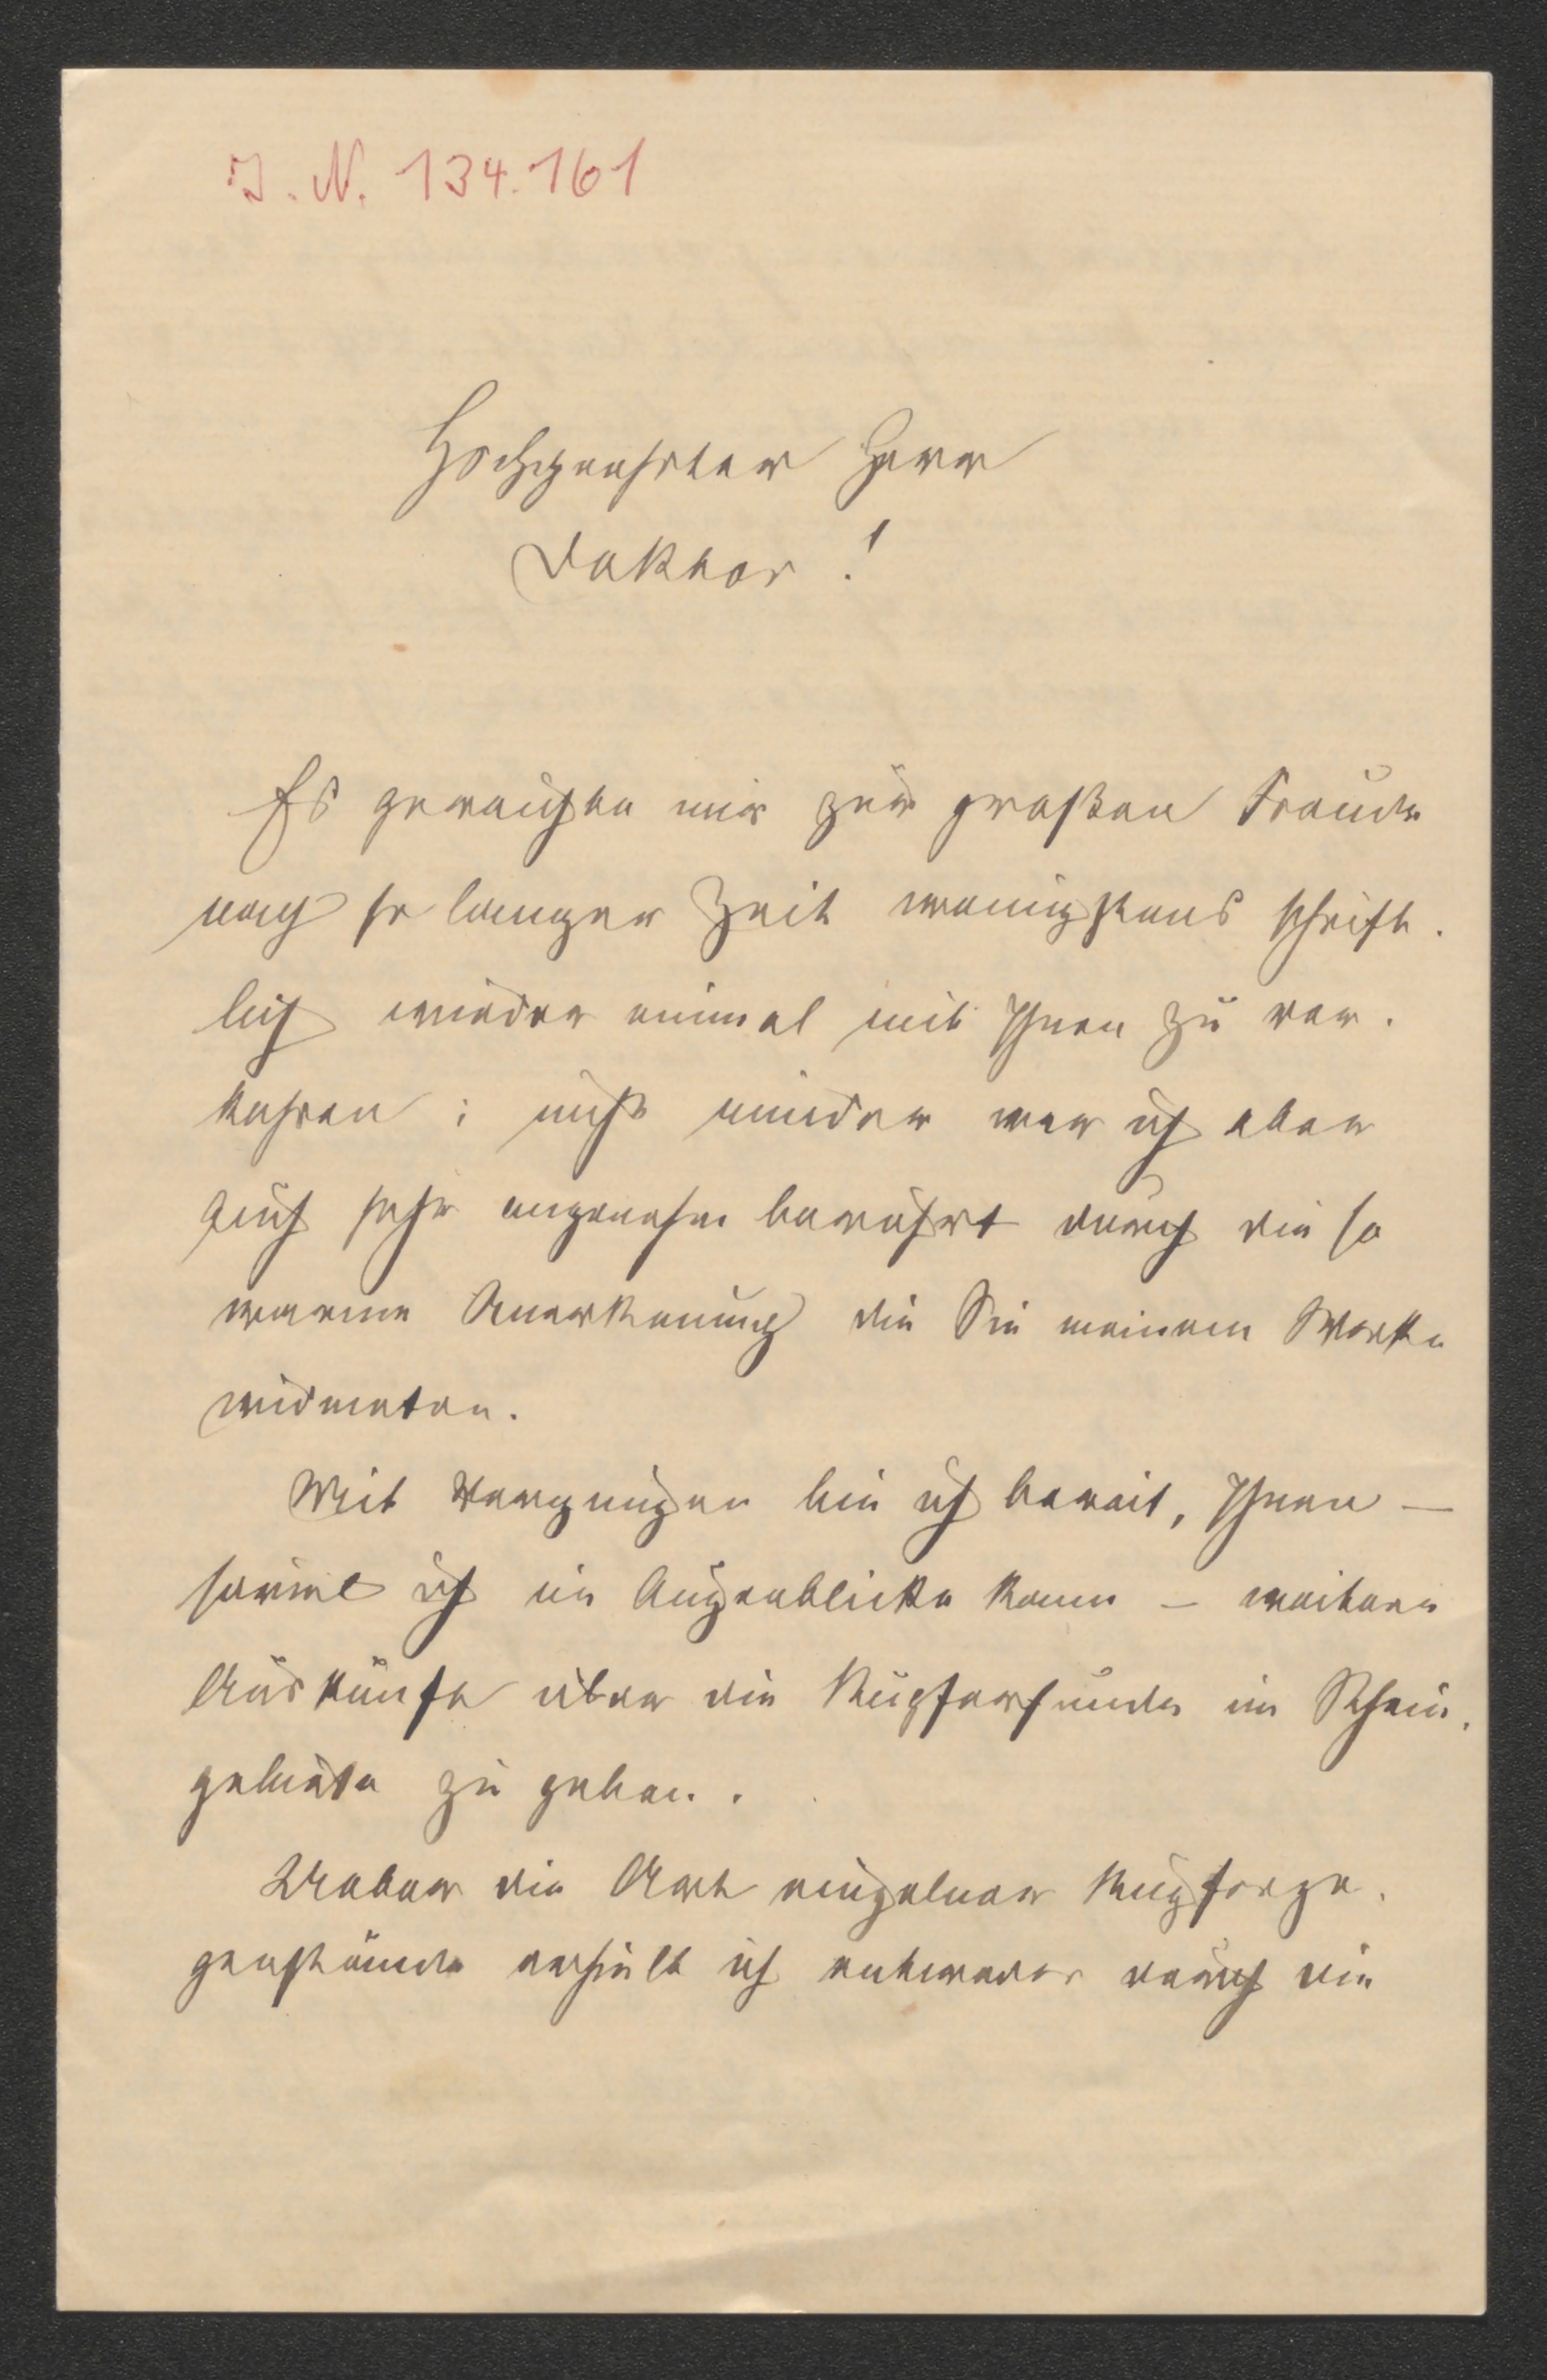 J. N. 134.161
Hochgeehrter Herr
Doktor!
Es gereichte mir zur großen Freude
nach so langer Zeit wenigstens schrift-
lich wieder einmal mit Ihnen zu ver-
kehren; nicht minder war ich aber
auch sehr angenehm berührt durch die so
warme Anerkenung die Sie meinem Werke
widmeten.
Mit Vergnügen bin ich bereit, Ihnen —
soviel ich im Augenblicke kann — weitere
Auskünfte über die Kupferfunde im Rhein-
gebiete zu geben.
Ueber die Art einzelner Kupferge-
genstände erhielt ich entweder durch die